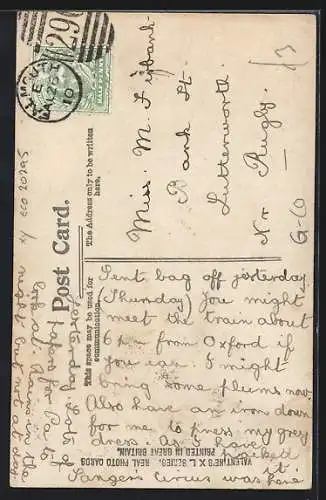 FALMOUTH
E
AU 26
10
29
HALFPENNY
Post Card.
The Address only to be written
here.
This space may be used for
communication.
VALENTINE'S X L SERIES. REAL PHOTO CARDS
PRINTED IN GREAT BRITAIN.
Miss. M. Fairbank
Bank St.
Lutterworth.
Nr Rugby.
Sent bag off yesterday
(Thursday) You might
meet the train about
6 from Oxford if
you can. I might
bring some plums now
Also have an iron down
for me to press my grey
dress. As I have packed
it.
Sangers Circus was here
yesterday. Lots of
papers for Pa to
read. Rains in the
night but not at day
xy eco 20295
G-10